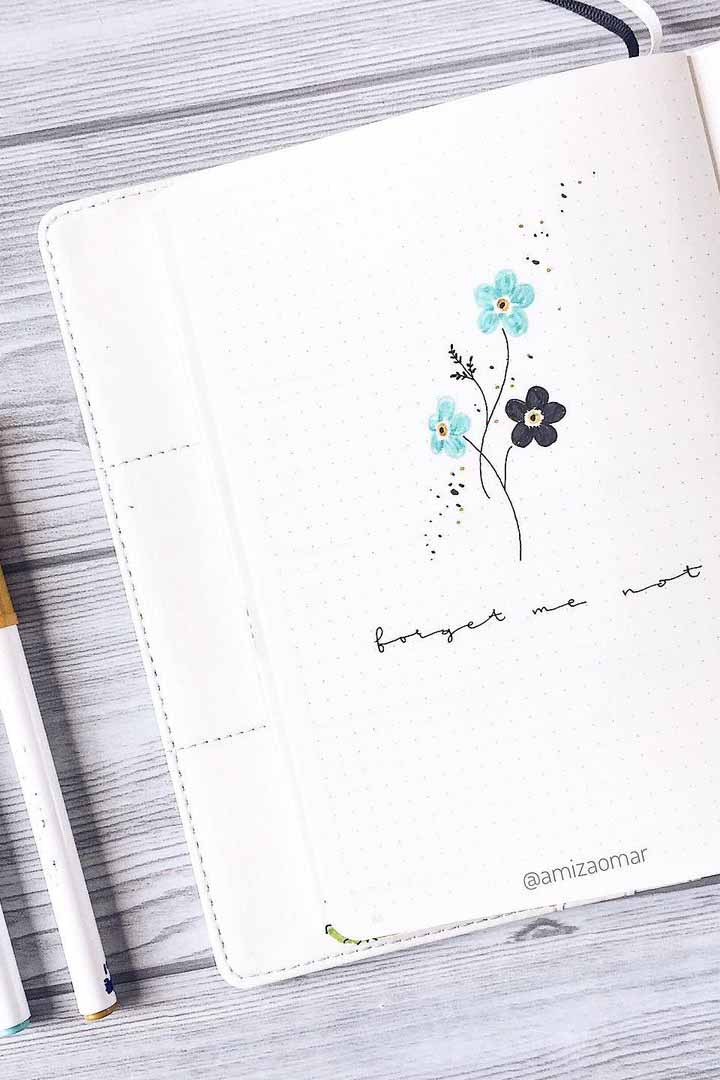 forget me not
@amizaomar